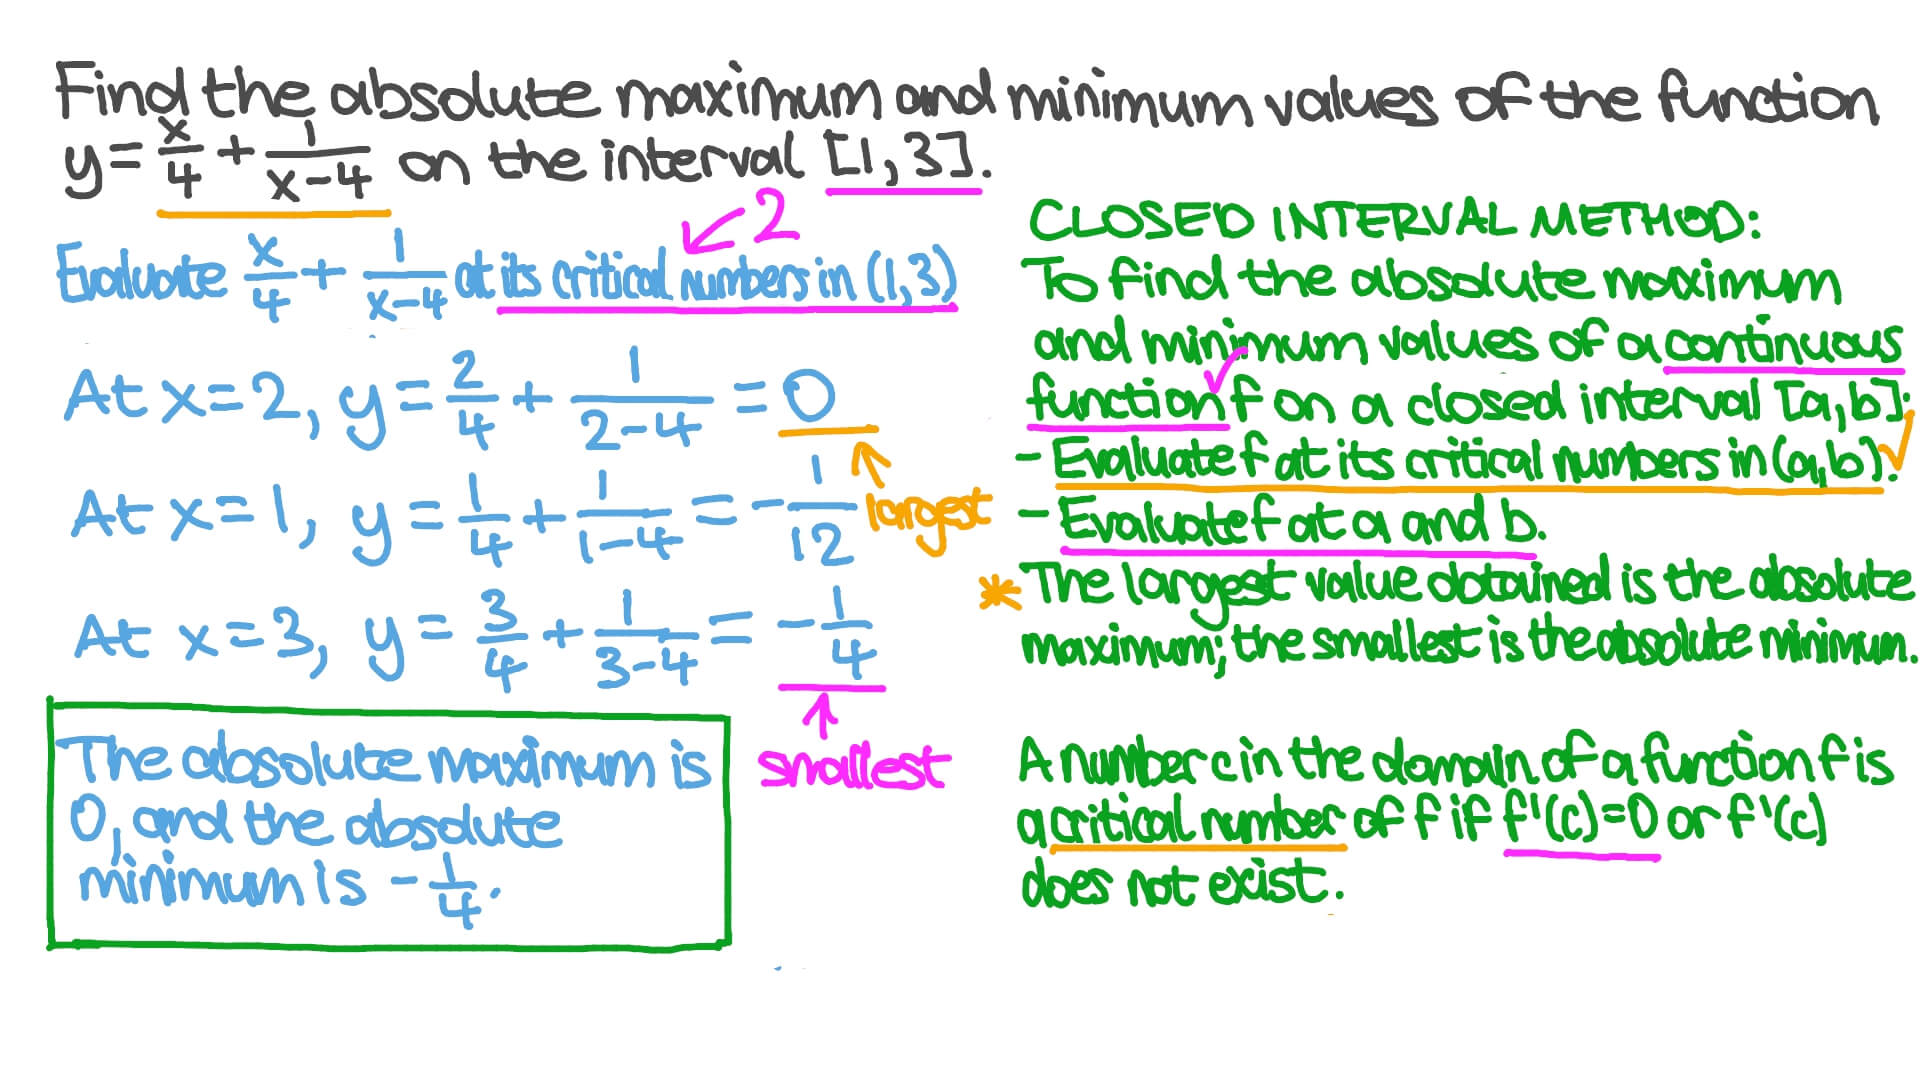 Find the absolute maximum and minimum values of the function
y = x/4 + 1/(x-4) on the interval [1, 3].
2
Evaluate x/4 + 1/(x-4) at its critical numbers in (1,3)
At x=2, y = 2/4 + 1/(2-4) = 0
largest
At x=1, y = 1/4 + 1/(1-4) = -1/12
At x=3, y = 3/4 + 1/(3-4) = -1/4
smallest
The absolute maximum is
0, and the absolute
minimum is -1/4.
CLOSED INTERVAL METHOD:
To find the absolute maximum
and minimum values of a continuous
function f on a closed interval [a,b]:
- Evaluate f at its critical numbers in (a,b).
- Evaluate f at a and b.
* The largest value obtained is the absolute
maximum; the smallest is the absolute minimum.
A number c in the domain of a function f is
a critical number of f if f'(c)=0 or f'(c)
does not exist.